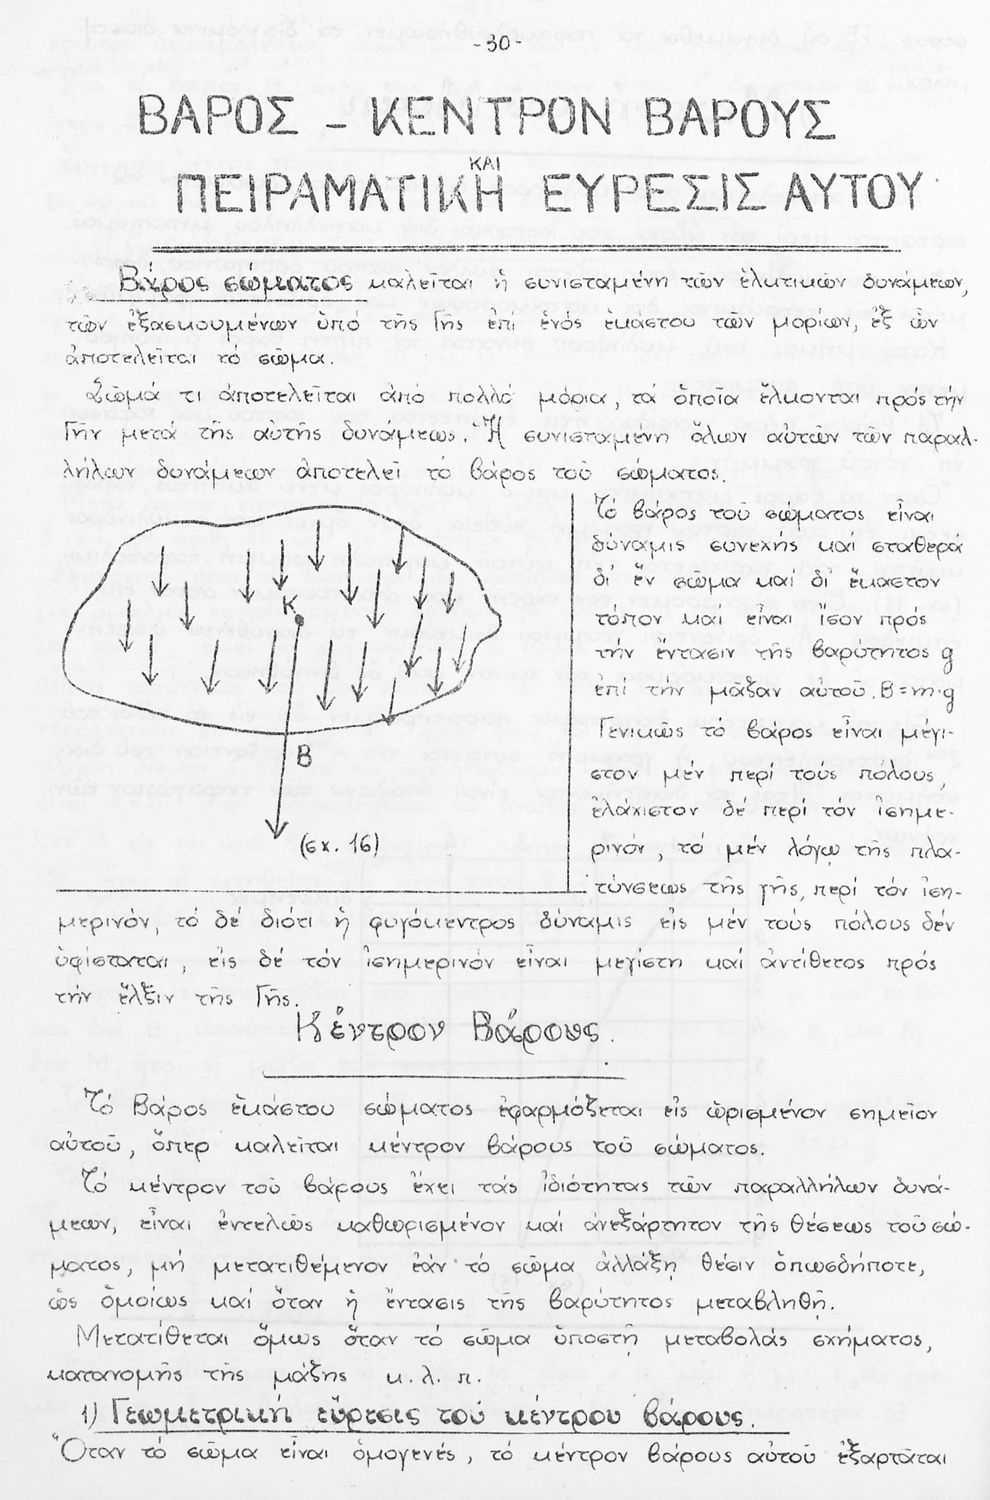 -30-
ΒΑΡΟΣ - ΚΕΝΤΡΟΝ ΒΑΡΟΥΣ
ΚΑΙ
ΠΕΙΡΑΜΑΤΙΚΗ ΕΥΡΕΣΙΣ ΑΥΤΟΥ
Βάρος σώματος καλεῖται ἡ συνισταμένη τῶν ἑλκτικῶν δυνάμεων,
τῶν ἐξασκουμένων ὑπό τῆς Γῆς ἐπί ἑνός ἑκάστου τῶν μορίων, ἐξ ὧν
ἀποτελεῖται τό σῶμα.
Σῶμά τι ἀποτελεῖται ἀπό πολλά μόρια, τά ὁποῖα ἕλκονται πρός τήν
Γῆν μετά τῆς αὐτῆς δυνάμεως. Ἡ συνισταμένη ὅλων αὐτῶν τῶν παραλ-
λήλων δυνάμεων ἀποτελεῖ τό βάρος τοῦ σώματος.
Κ
Β
(σχ. 16)
Τό βάρος τοῦ σώματος εἶναι
δύναμις συνεχής καί σταθερά
δι' ἕν σῶμα καί δι' ἕκαστον
τόπον καί εἶναι ἴσον πρός
τήν ἔντασιν τῆς βαρύτητος g
ἐπί τήν μᾶζαν αὐτοῦ. B=m·g
Γενικῶς τό βάρος εἶναι μέγι-
στον μέν περί τούς πόλους,
ἐλάχιστον δέ περί τόν ἰσημε-
ρινόν, τό μέν λόγῳ τῆς πλα-
τύνσεως τῆς γῆς, περί τόν ἰση-
μερινόν, τό δέ διότι ἡ φυγόκεντρος δύναμις εἰς μέν τούς πόλους δέν
ὑφίσταται, εἰς δέ τόν ἰσημερινόν εἶναι μεγίστη καί ἀντίθετος πρός
τήν ἕλξιν τῆς Γῆς.
Κέντρον Βάρους.
Τό βάρος ἑκάστου σώματος ἐφαρμόζεται εἰς ὡρισμένον σημεῖον
αὐτοῦ, ὅπερ καλεῖται κέντρον βάρους τοῦ σώματος.
Τό κέντρον τοῦ βάρους ἔχει τάς ἰδιότητας τῶν παραλλήλων δυνά-
μεων, εἶναι ἐντελῶς καθωρισμένον καί ἀνεξάρτητον τῆς θέσεως τοῦ σώ-
ματος, μή μετατιθέμενον ἐάν τό σῶμα ἀλλάξῃ θέσιν ὁπωσδήποτε,
ὡς ὁμοίως καί ὅταν ἡ ἔντασις τῆς βαρύτητος μεταβληθῇ.
Μετατίθεται ὅμως ὅταν τό σῶμα ὑποστῇ μεταβολάς σχήματος,
κατανομῆς τῆς μάζης κ. λ. π.
1) Γεωμετρική εὕρεσις τοῦ κέντρου βάρους.
Ὅταν τό σῶμα εἶναι ὁμογενές, τό κέντρον βάρους αὐτοῦ ἐξαρτᾶται